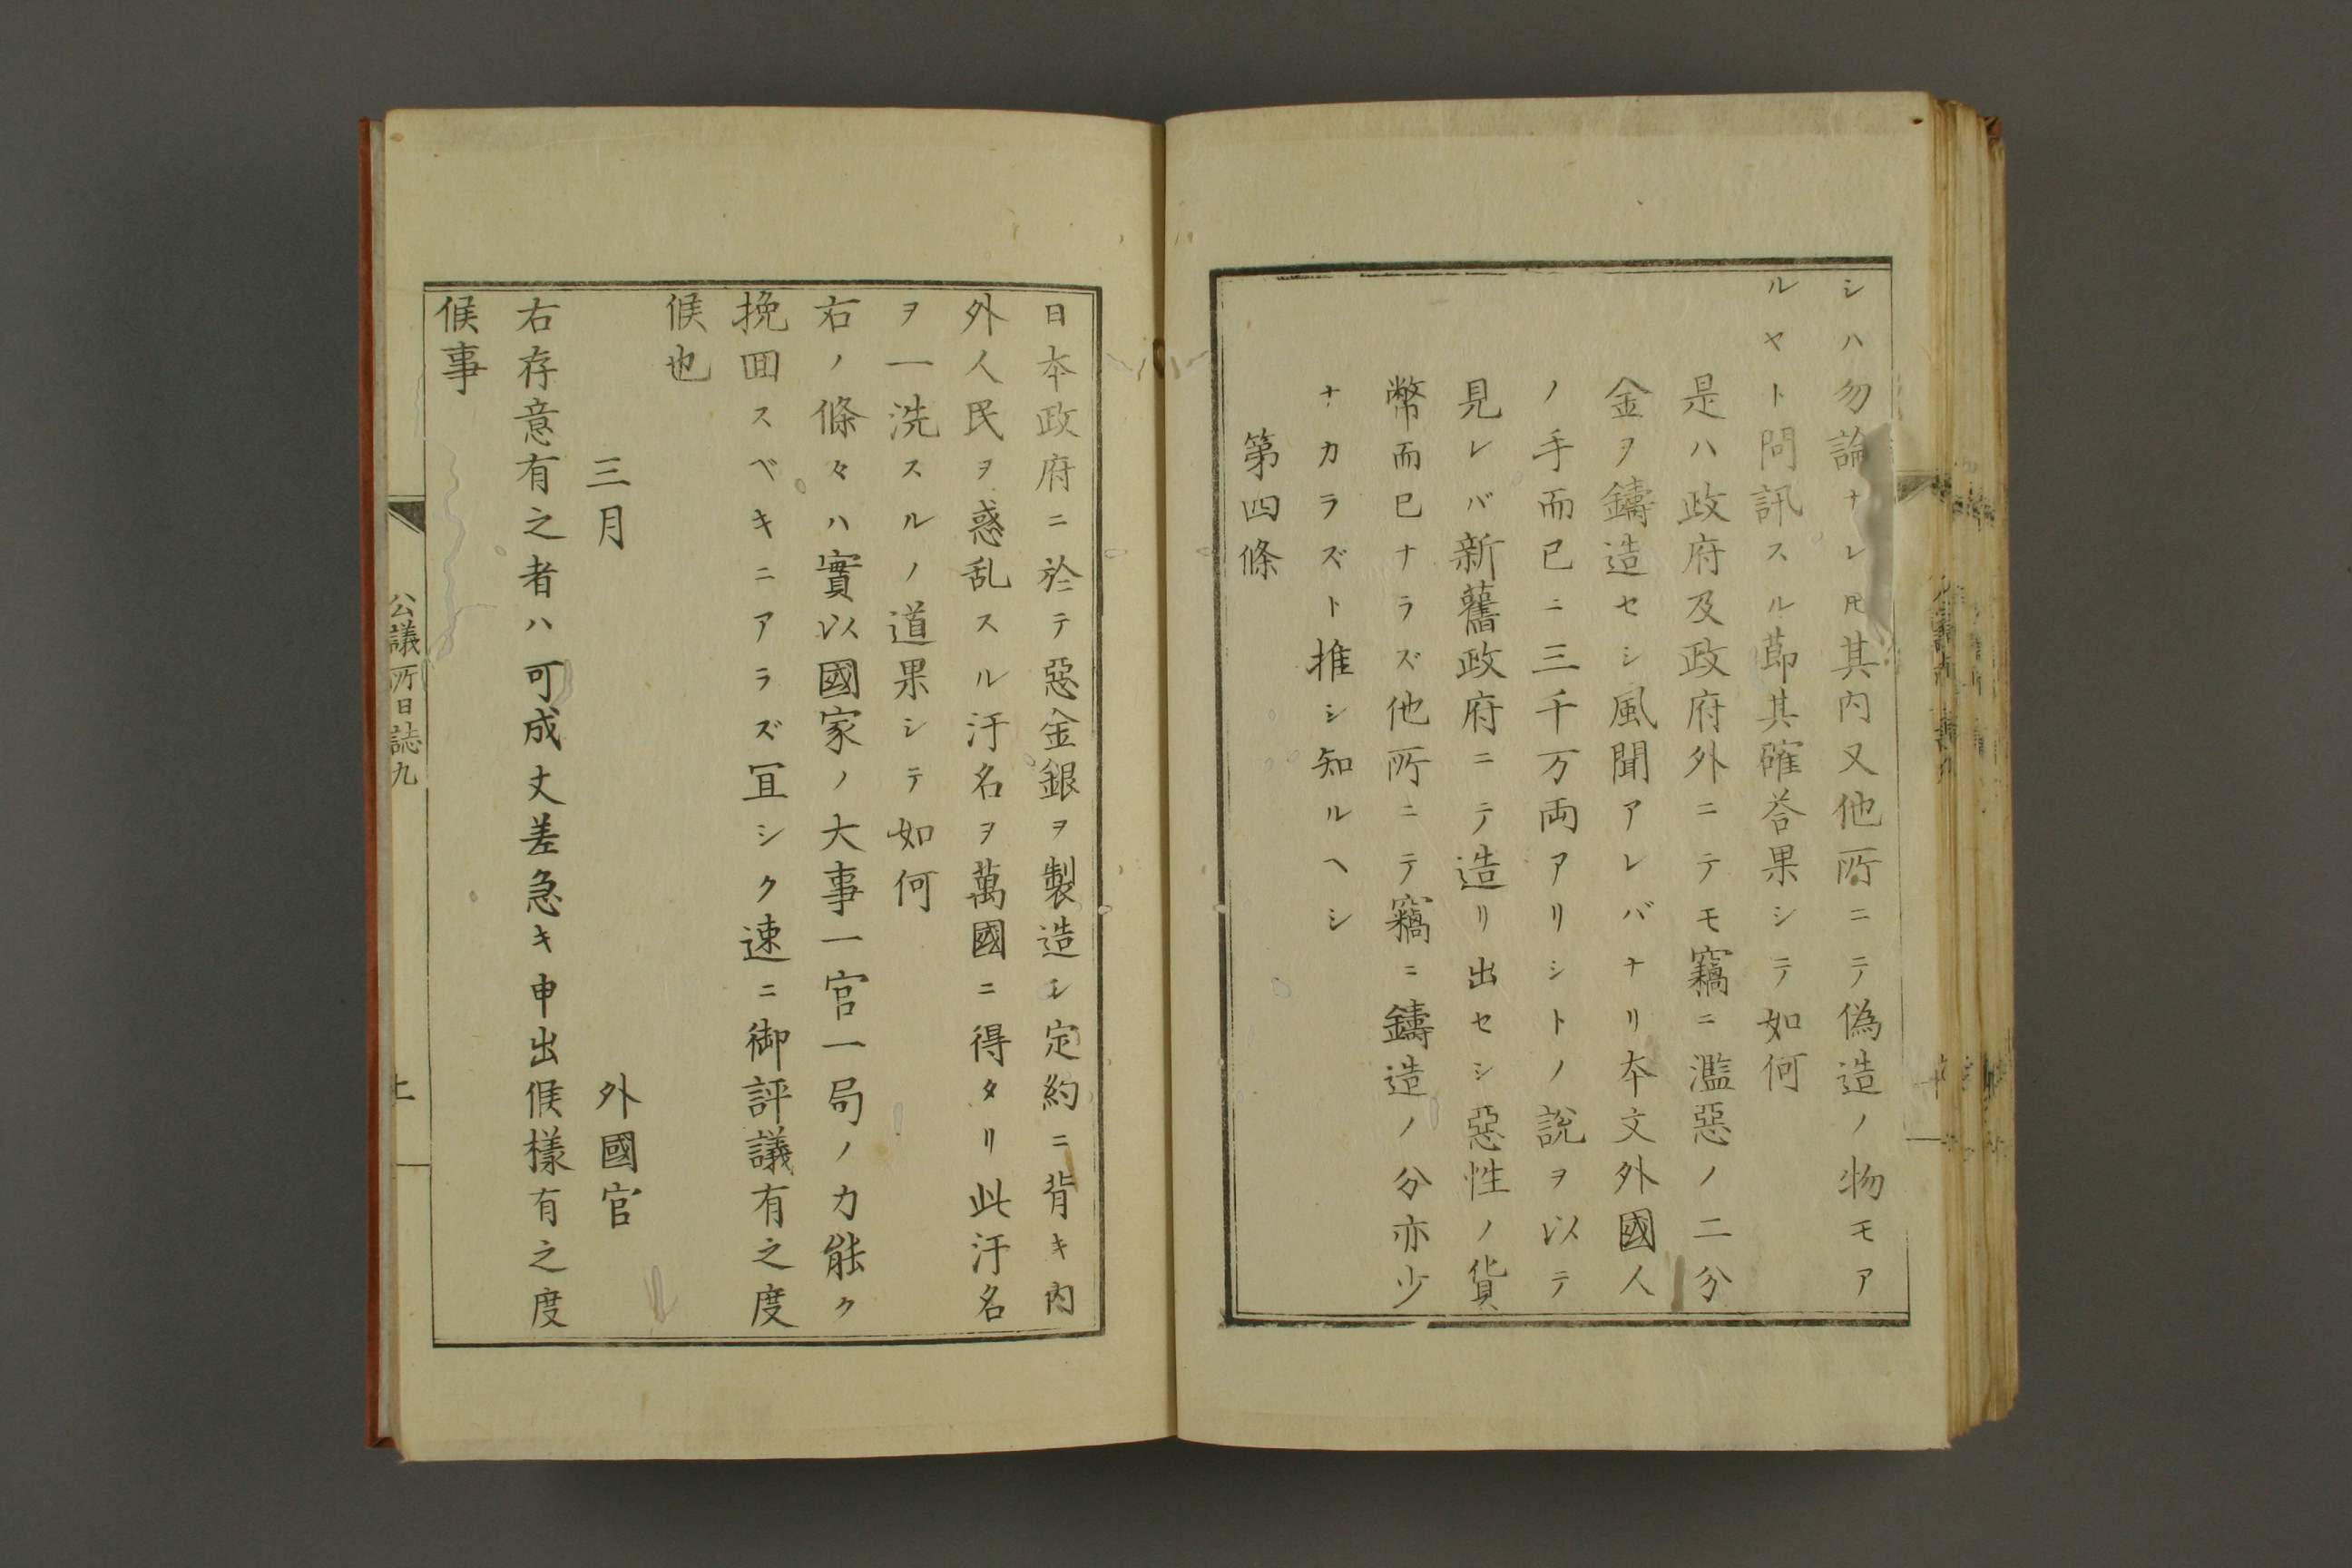 シハ勿論ナレ𪜈其内又他所ニテ偽造ノ物モア
ルヤト問訊スル節其確荅果シテ如何
是ハ政府及政府外ニテモ竊ニ濫惡ノ二分
金ヲ鑄造セシ風聞アレバナリ本文外國人
ノ手而已ニ三千万両アリシトノ説ヲ以テ
見レバ新舊政府ニテ造リ出セシ惡性ノ貨
幣而已ナラズ他所ニテ竊ニ鑄造ノ分亦少
ナカラズト推シ知ルヘシ
第四條
日本政府ニ於テ惡金銀ヲ製造シ定約ニ背キ内
外人民ヲ惑乱スル汙名ヲ萬國ニ得タリ此汙名
ヲ一洗スルノ道果シテ如何
右ノ條々ハ實以國家ノ大事一官一局ノ力能ク
挽囬スベキニアラズ冝シク速ニ御評議有之度
候也
三月
外國官
右存意有之者ハ可成丈差急キ申出候樣有之度
候事
公議所日誌九